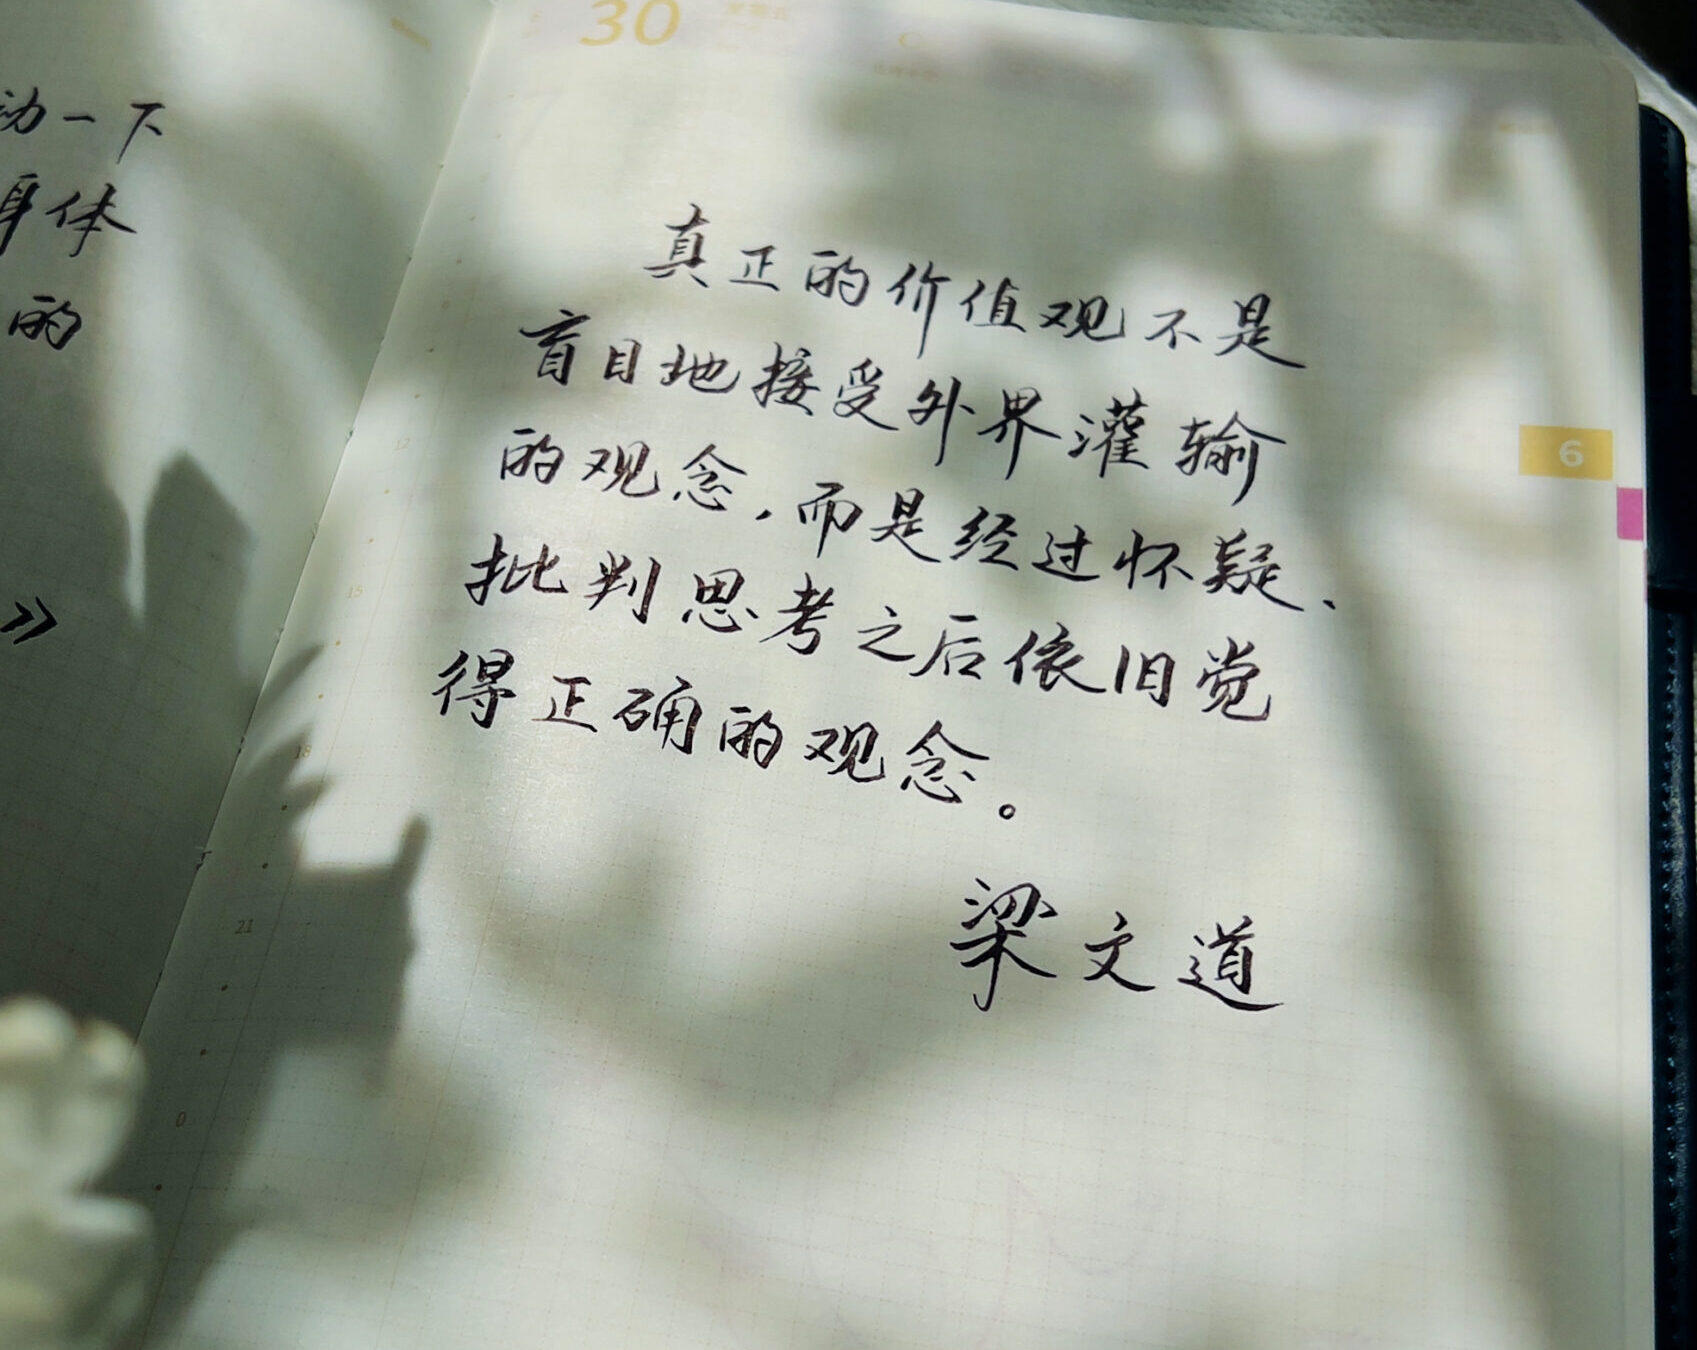 30
动一下
身体
的
》
真正的价值观不是
盲目地接受外界灌输
的观念，而是经过怀疑、
批判思考之后依旧觉
得正确的观念。
梁文道
6
12
15
18
21
0